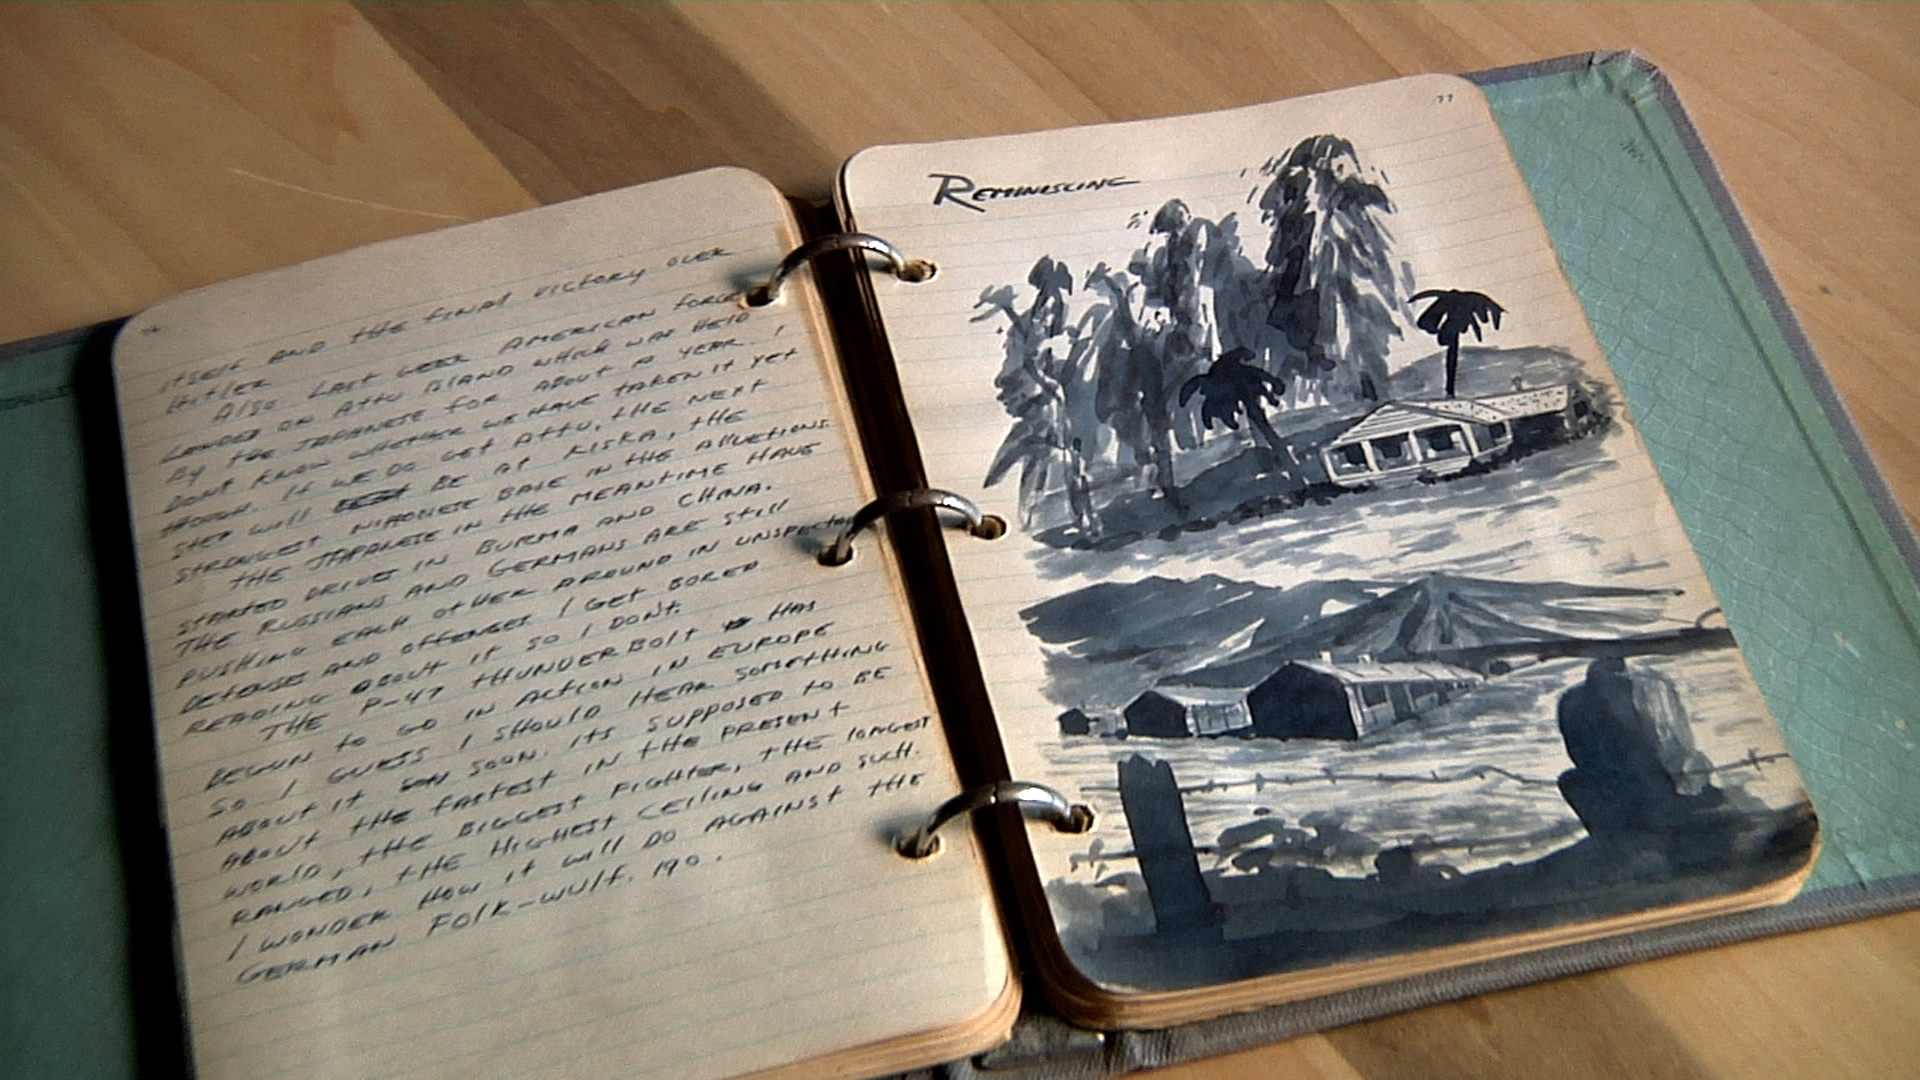 76
ITSELF AND THE FINAL VICTORY OVER
HITLER
ALSO LAST WEEK AMERICAN FORCES
LANDED ON ATTU ISLAND WHICH WAS HELD
BY THE JAPANESE FOR ABOUT A YEAR. I
DONT KNOW WHETHER WE HAVE TAKEN IT YET
THOUGH. IF WE DO GET ATTU, THE NEXT
STEP WILL BE AT KISKA, THE
STRONGEST NIPONESE BASE IN THE ALLUETIONS.
THE JAPANESE IN THE MEANTIME HAVE
STARTED DRIVES IN BURMA AND CHINA.
THE RUSSIANS AND GERMANS ARE STILL
PUSHING EACH OTHER AROUND IN UNSPECTED
DEFENSES AND OFFENSES I GET BORED
READING ABOUT IT SO I DON'T.
THE P-47 THUNDERBOLT HAS
BEGUN TO GO IN ACTION IN EUROPE
SO I GUESS I SHOULD HEAR SOMETHING
ABOUT IT SOON. ITS SUPPOSED TO BE
ABOUT THE FASTEST IN THE PRESENT
WORLD, THE BIGGEST FIGHTER, THE LONGEST
RANGED, THE HIGHEST CEILING AND SUCH.
I WONDER HOW IT WILL DO AGAINST THE
GERMAN FOLK-WULF. 190.
77
REMINISCING